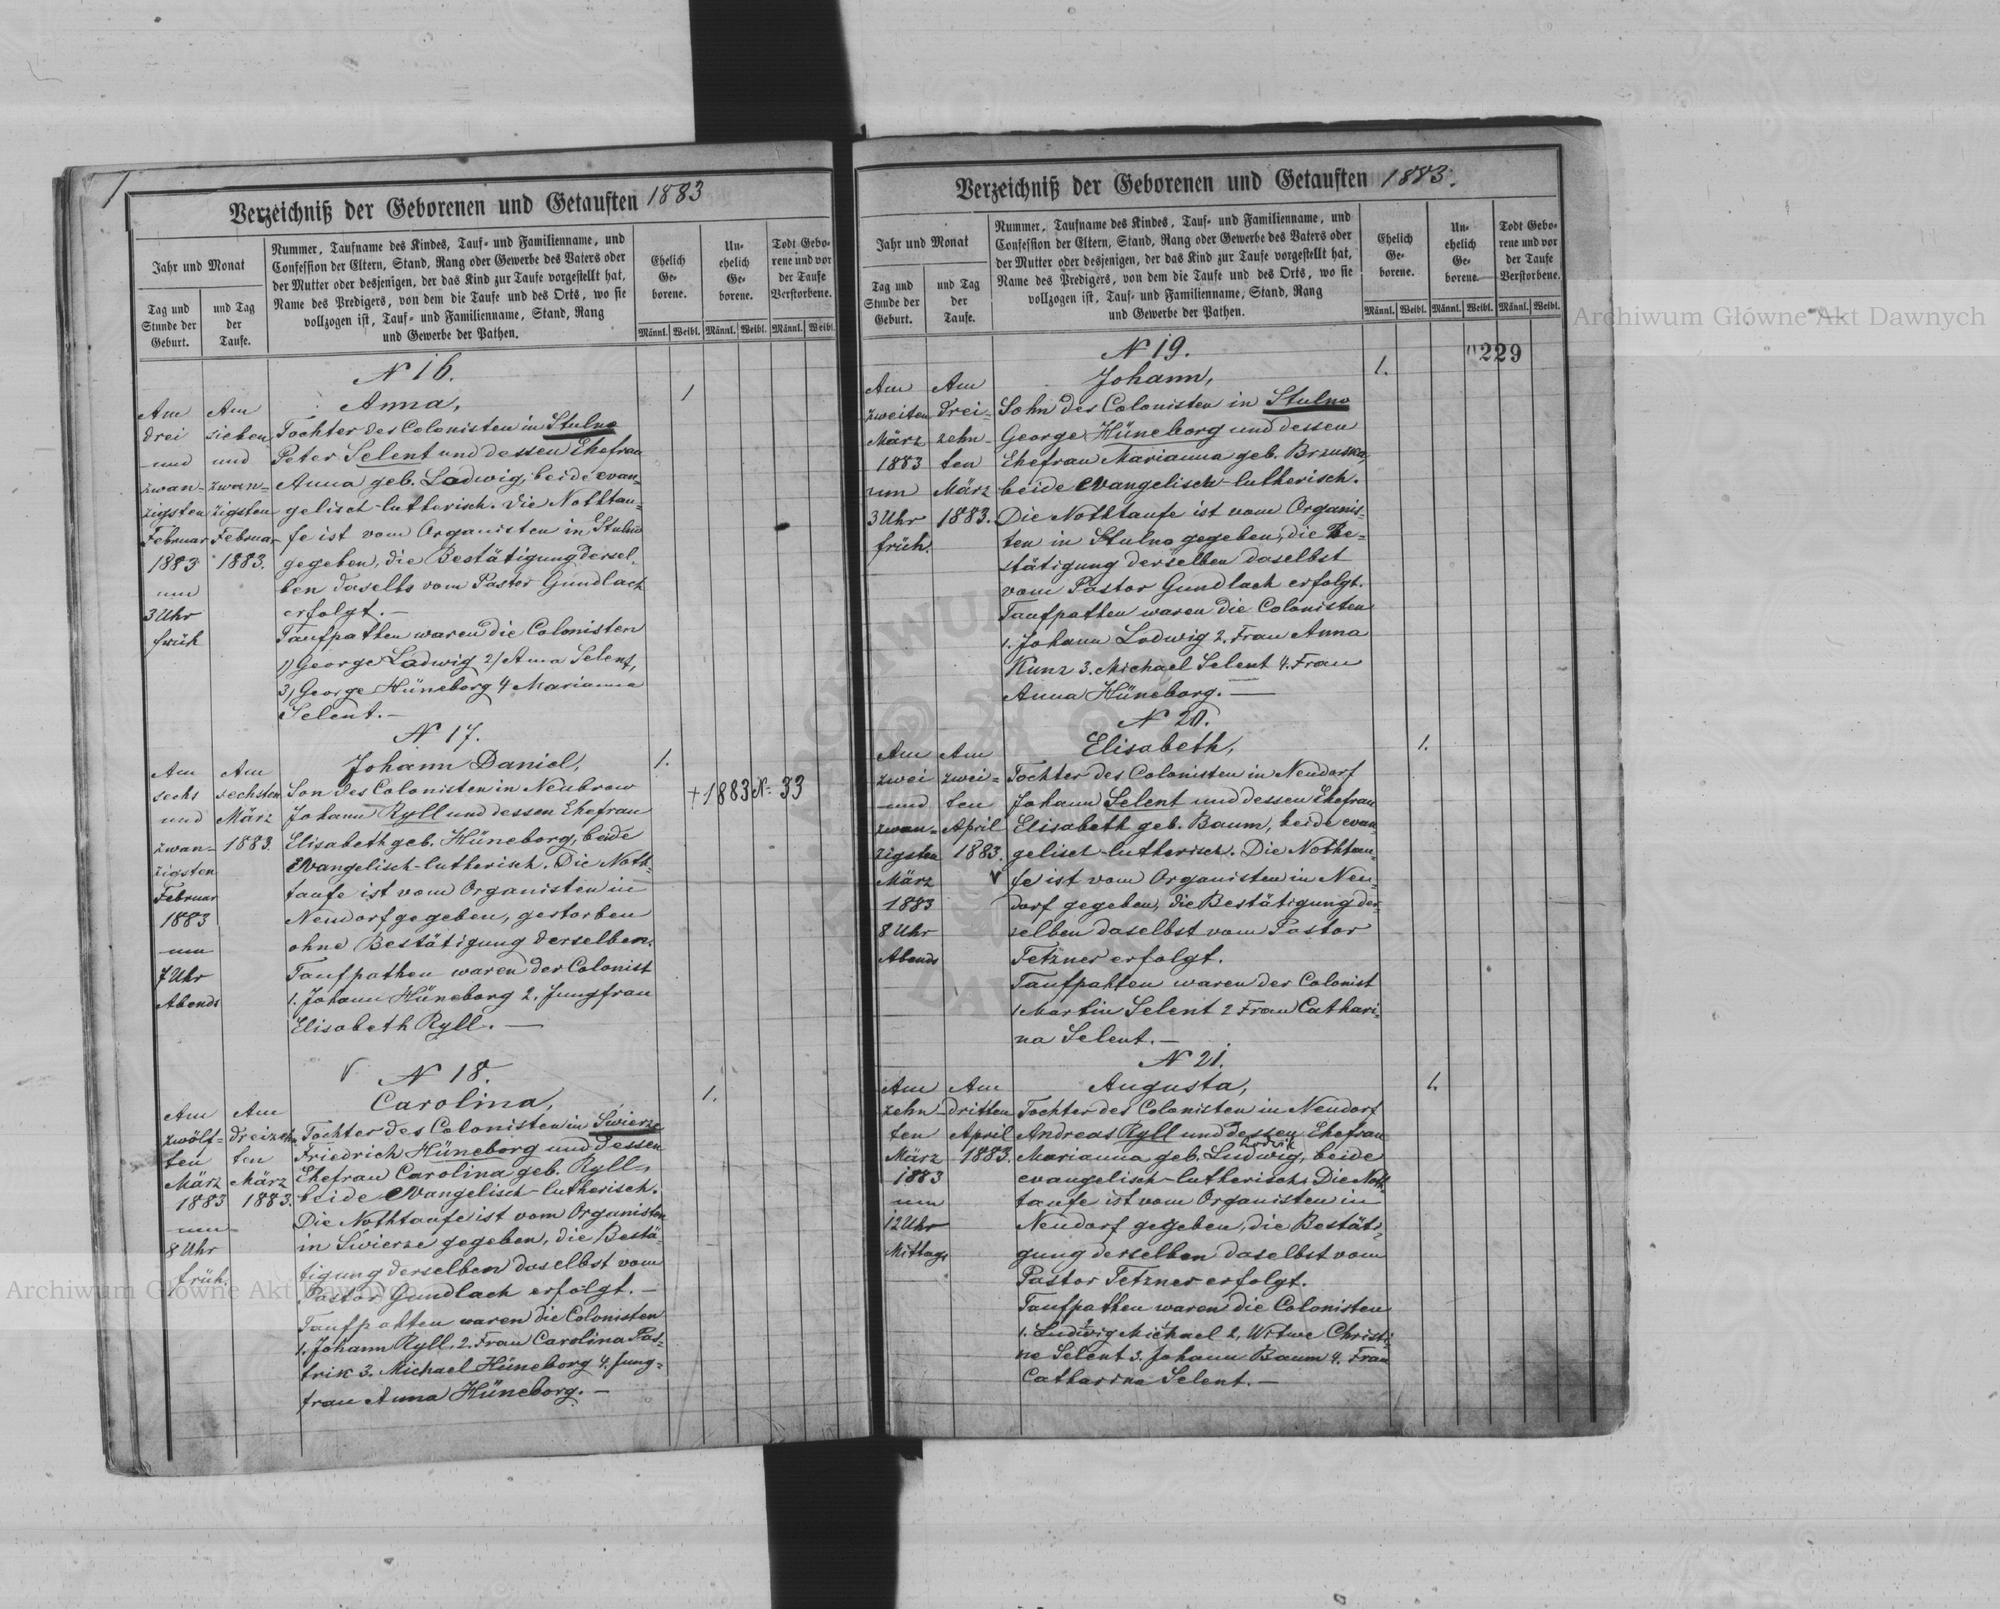 Verzeichniß der Geborenen und Getauften 1883
Jahr und Monat
Tag und Stunde der Geburt.
und Tag der Taufe.
Nummer, Taufname des Kindes, Tauf- und Familienname, und
Confession der Eltern, Stand, Rang oder Gewerbe des Vaters oder
der Mutter oder desjenigen, der das Kind zur Taufe vorgestellt hat,
Name des Predigers, von dem die Taufe und des Orts, wo sie
vollzogen ist, Tauf- und Familienname, Stand, Rang
und Gewerbe der Pathen.
Ehelich Geborene.
Unehelich Geborene.
Todt Geborene und vor der Taufe Verstorbene.
Männl. Weibl. Männl. Weibl. Männl. Weibl.
N 16.
Anna,
1
Am drei und zwanzigsten Februar 1883 um 3 Uhr früh
Am sieben und zwanzigsten Februar 1883.
Tochter des Colonisten in Stulno
Peter Selent und dessen Ehefrau
Anna geb. Ladwig, beide evan-
gelisch-lutherisch. Die Nothtau-
fe ist vom Organisten in Stulno
gegeben, die Bestätigung dersel-
ben daselbs vom Pastor Gundlach
erfolgt.—
Taufpathen waren die Colonisten
1) George Ladwig 2) Anna Selent,
3) George Hüneborg 4 Marianna
Selent.—
N 17.
Johann Daniel,
1.
Am sechs und zwanzigsten Februar 1883 um 7 Uhr Abends
Am sechsten März 1883.
Son des Colonisten in Neubrow
Johann Ryll und dessen Ehefrau
Elisabeth geb. Hüneborg, beide
evangelisch-lutherisch. Die Noth-
taufe ist vom Organisten in
Neudorf gegeben, gestorben
ohne Bestätigung derselben.
Taufpathen waren der Colonist
1. Johann Hüneborg 2. Jungfrau
Elisabeth Ryll.—
+ 1883 No 33
N 18.
Carolina,
1.
Am zwölften März 1883 um 8 Uhr früh.
Am dreizehnten März 1883.
Tochter des Colonisten in Swierze
Friedrich Hüneborg und dessen
Ehefrau Carolina geb. Ryll,
beide evangelisch-lutherisch.
Die Nothtaufe ist vom Organisten
in Swierze gegeben, die Bestä-
tigung derselben daselbst vom
Pastor Gundlach erfolgt.—
Taufpathen waren die Colonisten
1. Johann Ryll, 2. Frau Carolina Pas-
trik 3. Michael Hüneborg 4. Jung-
frau Anna Hüneborg.—
Verzeichniß der Geborenen und Getauften 1883.
Jahr und Monat
Tag und Stunde der Geburt.
und Tag der Taufe.
Nummer, Taufname des Kindes, Tauf- und Familienname, und
Confession der Eltern, Stand, Rang oder Gewerbe des Vaters oder
der Mutter oder desjenigen, der das Kind zur Taufe vorgestellt hat,
Name des Predigers, von dem die Taufe und des Orts, wo sie
vollzogen ist, Tauf- und Familienname, Stand, Rang
und Gewerbe der Pathen.
Ehelich Geborene.
Unehelich Geborene.
Todt Geborene und vor der Taufe Verstorbene.
Männl. Weibl. Männl. Weibl. Männl. Weibl.
229
N 19.
Johann,
1.
Am zweiten März 1883 um 3 Uhr früh.
Am dreizehnten März 1883.
Sohn des Colonisten in Stulno
George Hüneborg und dessen
Ehefrau Marianna geb. Brzuska,
beide evangelisch-lutherisch.
Die Nothtaufe ist vom Organis-
ten in Stulno gegeben, die Be-
stätigung derselben daselbst
vom Pastor Gundlach erfolgt.
Taufpathen waren die Colonisten
1. Johann Lodwig 2. Frau Anna
Kunz 3. Michael Selent 4. Frau
Anna Hüneborg.—
N 20.
Elisabeth,
1.
Am zwei und zwanzigsten März 1883 8 Uhr Abends
Am zweiten April 1883.
Tochter des Colonisten in Neudorf
Johann Selent und dessen Ehefrau
Elisabeth geb. Baum, beide evan-
gelisch-lutherisch. Die Nothtau-
fe ist vom Organisten in Neu-
dorf gegeben, die Bestätigung der-
selben daselbst vom Pastor
Tetzner erfolgt.
Taufpahten waren der Colonist
1 Martin Selent 2 Frau Cathari-
na Selent.—
N 21.
Augusta,
1.
Am zehnten März 1883 um 12 Uhr Mittags
Am dritten April 1883.
Tochter des Colonisten in Neudorf
Andreas Ryll und dessen Ehefrau
Marianna geb. Ludwig, beide
evangelisch-lutherisch. Die Noth-
taufe ist vom Organisten in
Neudorf gegeben, die Bestäti-
gung derselben daselbst vom
Pastor Tetzner erfolgt.
Taufpathen waren die Colonisten
1. Ludwig Michael 2. Witwe Christi-
ne Selent 3. Johann Baum 4. Frau
Catharina Selent.—
Archiwum Główne Akt Dawnych
Archiwum Główne Akt Dawnych